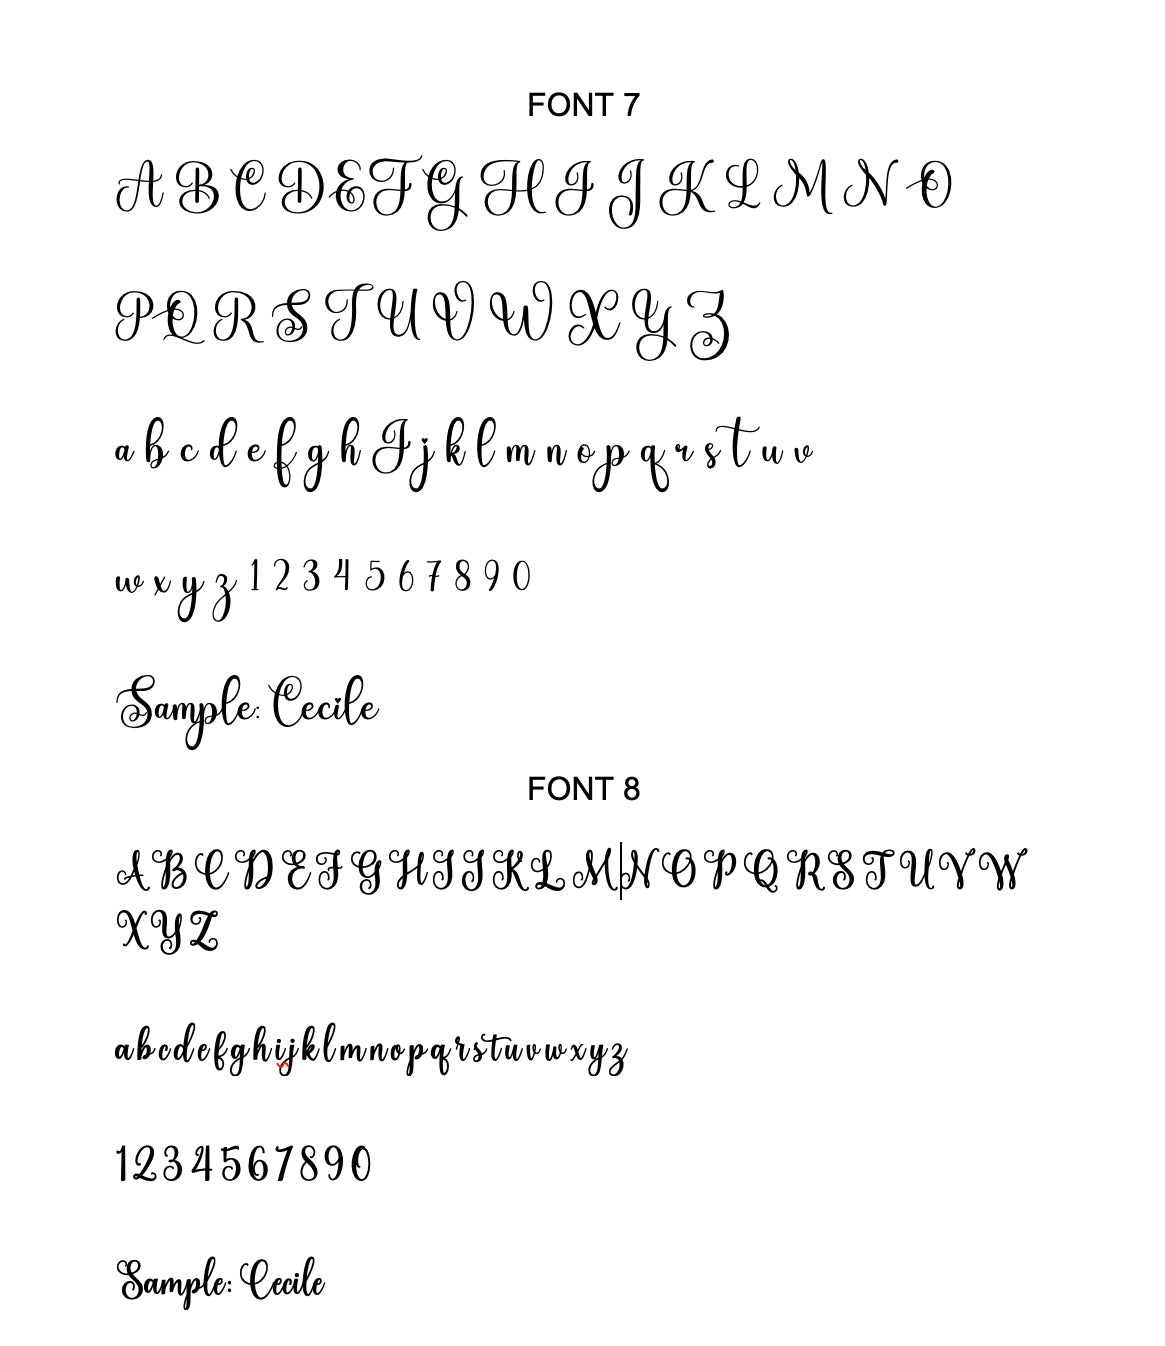 FONT 7
A B C D E F G H I J K L M N O
P Q R S T U V W X Y Z
a b c d e f g h I j k l m n o p q r s t u v
w x y z 1 2 3 4 5 6 7 8 9 0
Sample: Cecile
FONT 8
A B C D E F G H I J K L M N O P Q R S T U V W
X Y Z
a b c d e f g h i j k l m n o p q r s t u v w x y z
1 2 3 4 5 6 7 8 9 0
Sample: Cecile